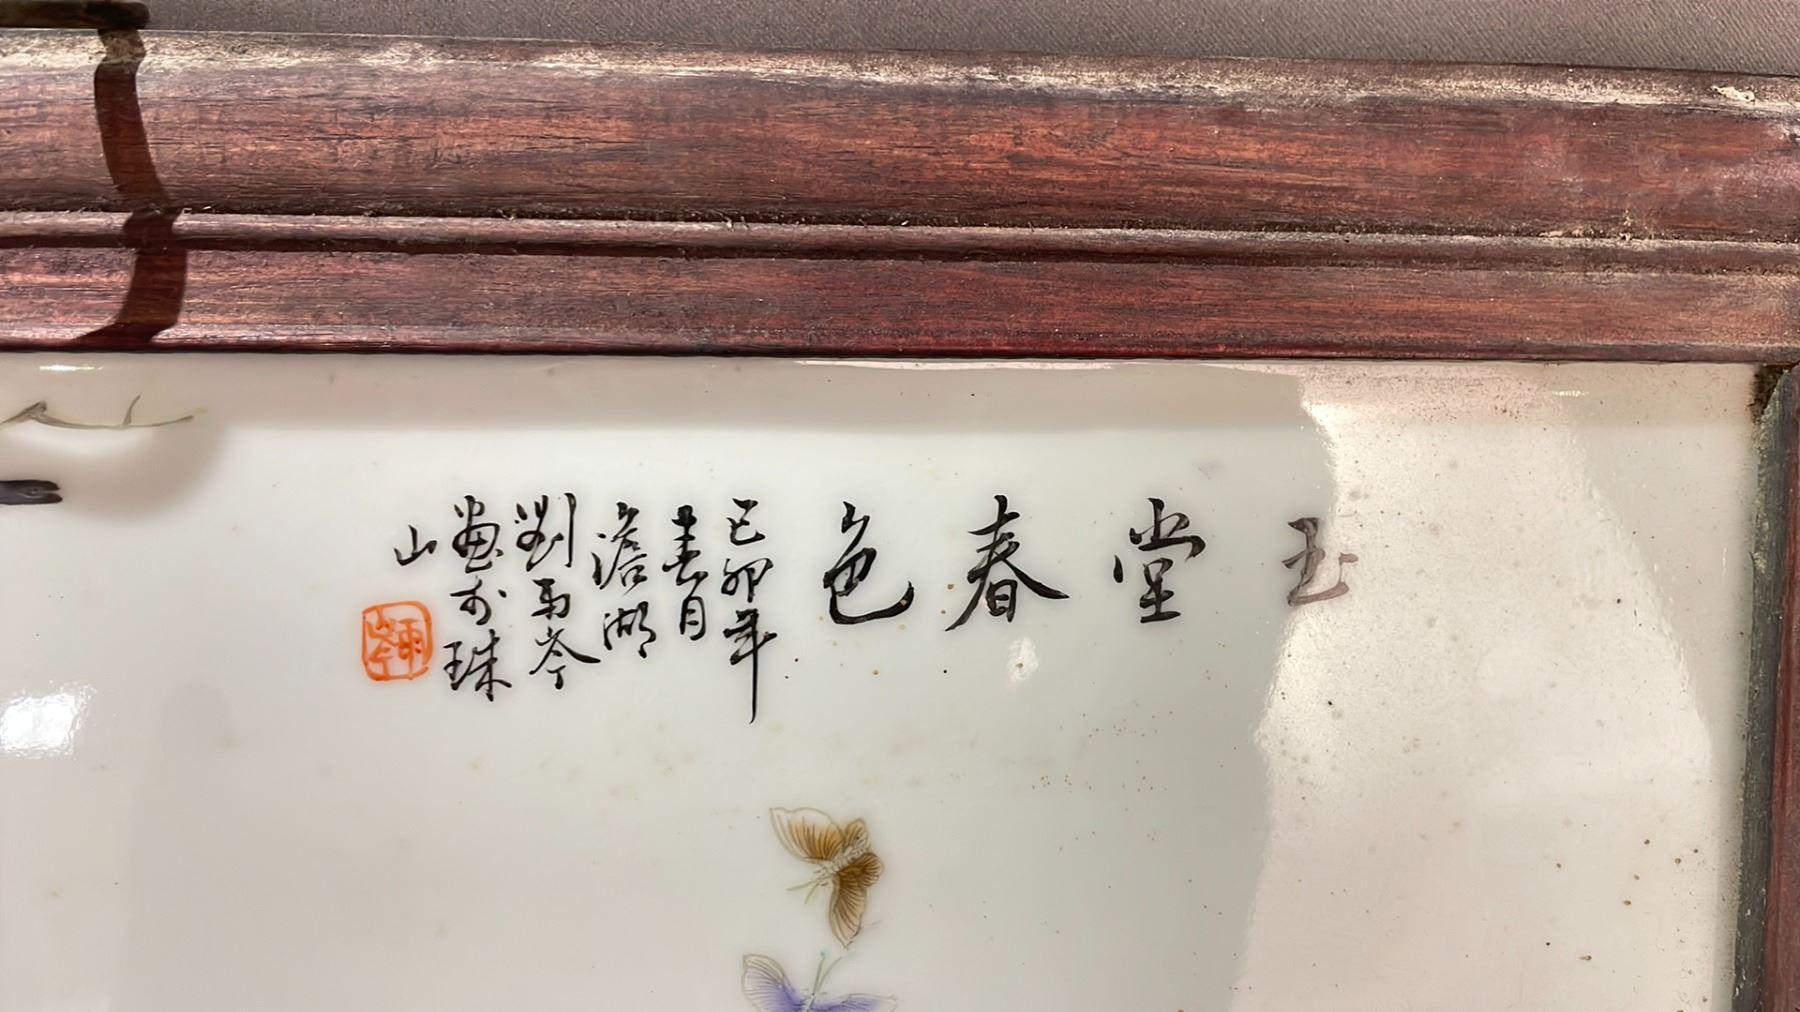 玉堂春色
己卯年
春月
澹湖
劉雨岑
畫於珠
山
雨岑